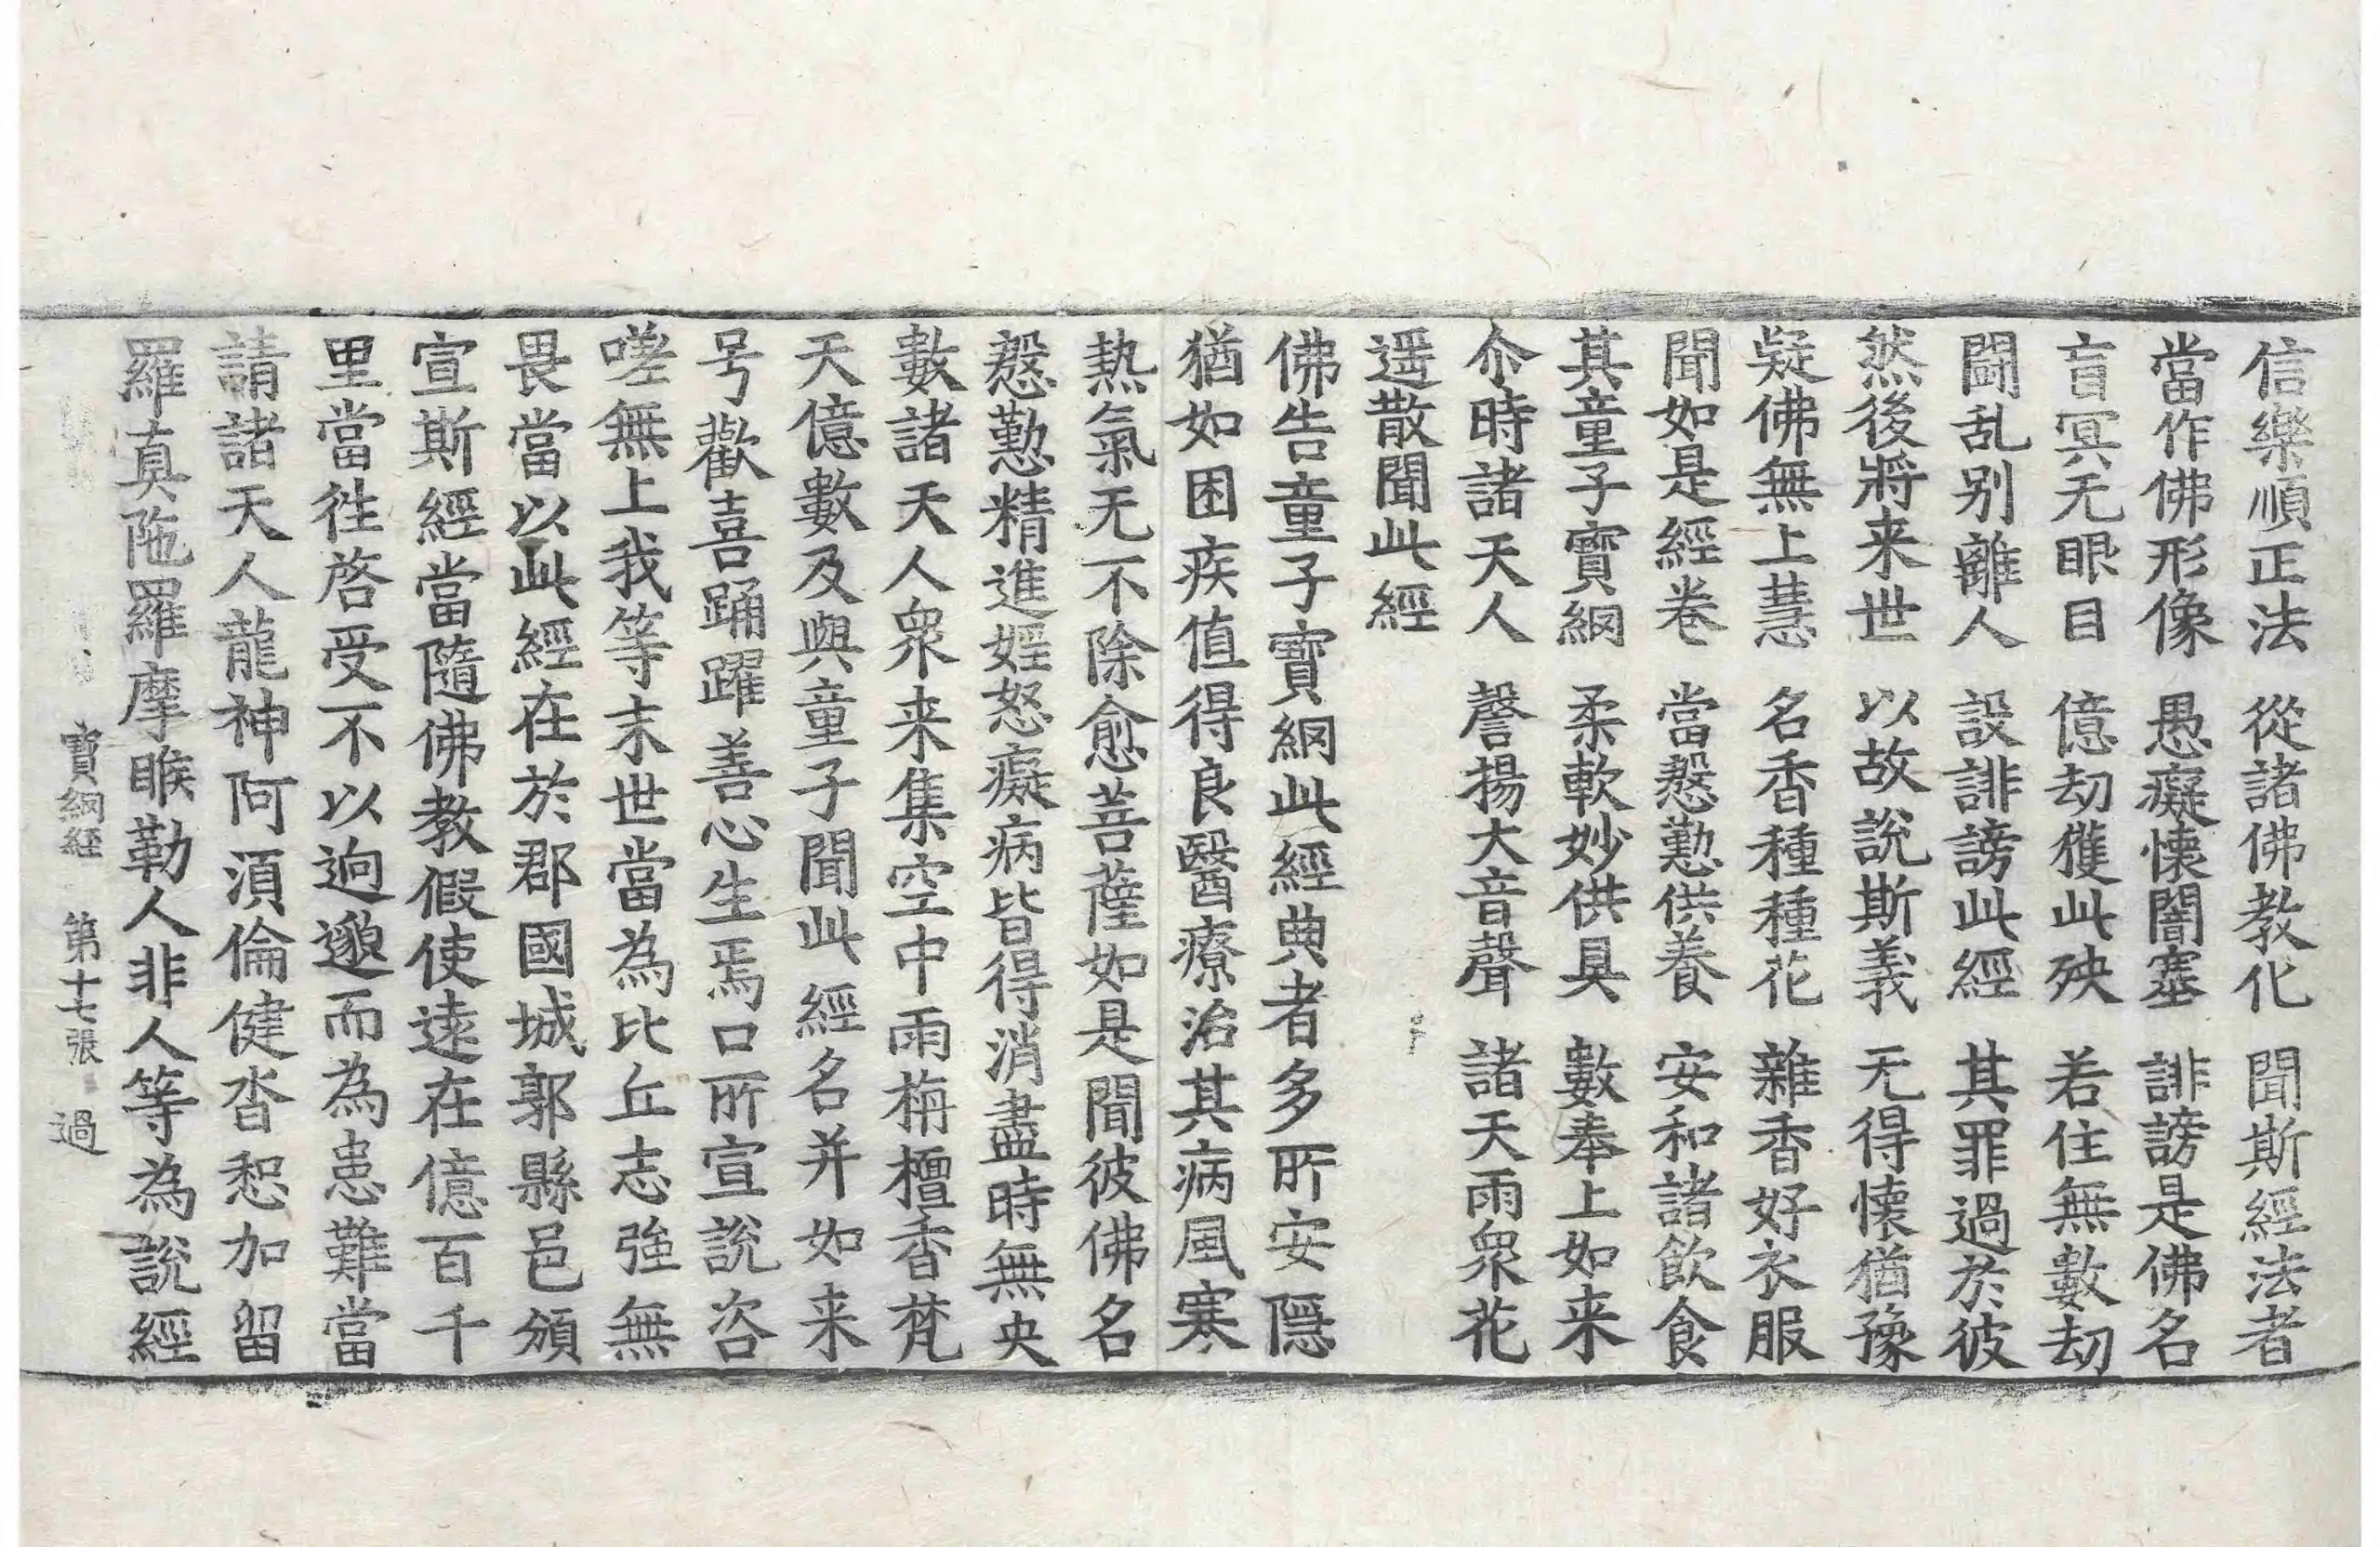 信樂順正法 從諸佛教化 聞斯經法者
當作佛形像 愚癡懷闇塞 誹謗是佛名
盲冥无眼目 億劫獲此殃 若住無數劫
鬪乱别離人 設誹謗此經 其罪過於彼
然後將来世 以故說斯義 无得懷猶豫
疑佛無上慧 名香種種花 雜香好衣服
聞如是經卷 當慇懃供養 安和諸飲食
其童子寶網 柔軟妙供具 數奉上如来
尒時諸天人 謦揚大音聲 諸天雨衆花
遥散聞此經
佛告童子寶網此經典者多所安隱
猶如困疾值得良醫療治其病風寒
熱氣无不除愈菩薩如是聞彼佛名
慇懃精進婬怒癡病皆得消盡時無央
數諸天人衆来集空中雨栴檀香梵
天億數及與童子聞此經名并如来
号歡喜踊躍善心生焉口所宣說咨
嗟無上我等末世當為比丘志強無
畏當以此經在於郡國城郭縣邑頒
宣斯經當隨佛教假使遠在億百千
里當徃啓受不以逈邈而為患難當
請諸天人龍神阿須倫健沓惒加留
羅真陁羅摩睺勒人非人等為說經
寶網經 第十七張 過